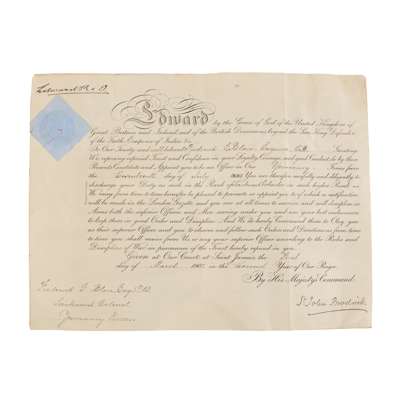 Edward R & I
Edward by the Grace of God of the United Kingdom of
Great Britain and Ireland and of the British Dominions beyond the Seas King Defender
of the Faith, Emperor of India &c.
To Our Trusty and well beloved Frederick Esquire Greeting
We reposing especial Trust and Confidence in your Loyalty Courage and good Conduct do by these
Presents Constitute and Appoint you to be an Officer in Our Yeomanry Forces from
the day of July You are therefore carefully and diligently to
discharge your Duty as such in the Rank of Lieutenant Colonel or in such higher Rank as
We may from time to time hereafter be pleased to promote or appoint you to of which a notification
will be made in the London Gazette and you are at all times to exercise and well discipline in
Arms both the inferior Officers and Men serving under you and use your best endeavours
to keep them in good Order and Discipline. And We do hereby Command them to Obey you
as their superior Officer and you to observe and follow such Orders and Directions as from time
to time you shall receive from Us or any your superior Officer according to the Rules and
Discipline of War in pursuance of the Trust hereby reposed in you.
Given at Our Court at Saint James's the
day of March in the Second Year of Our Reign
By His Majesty's Command.
Frederick Esquire
Lieutenant Colonel
Yeomanry Forces
St John Brodrick